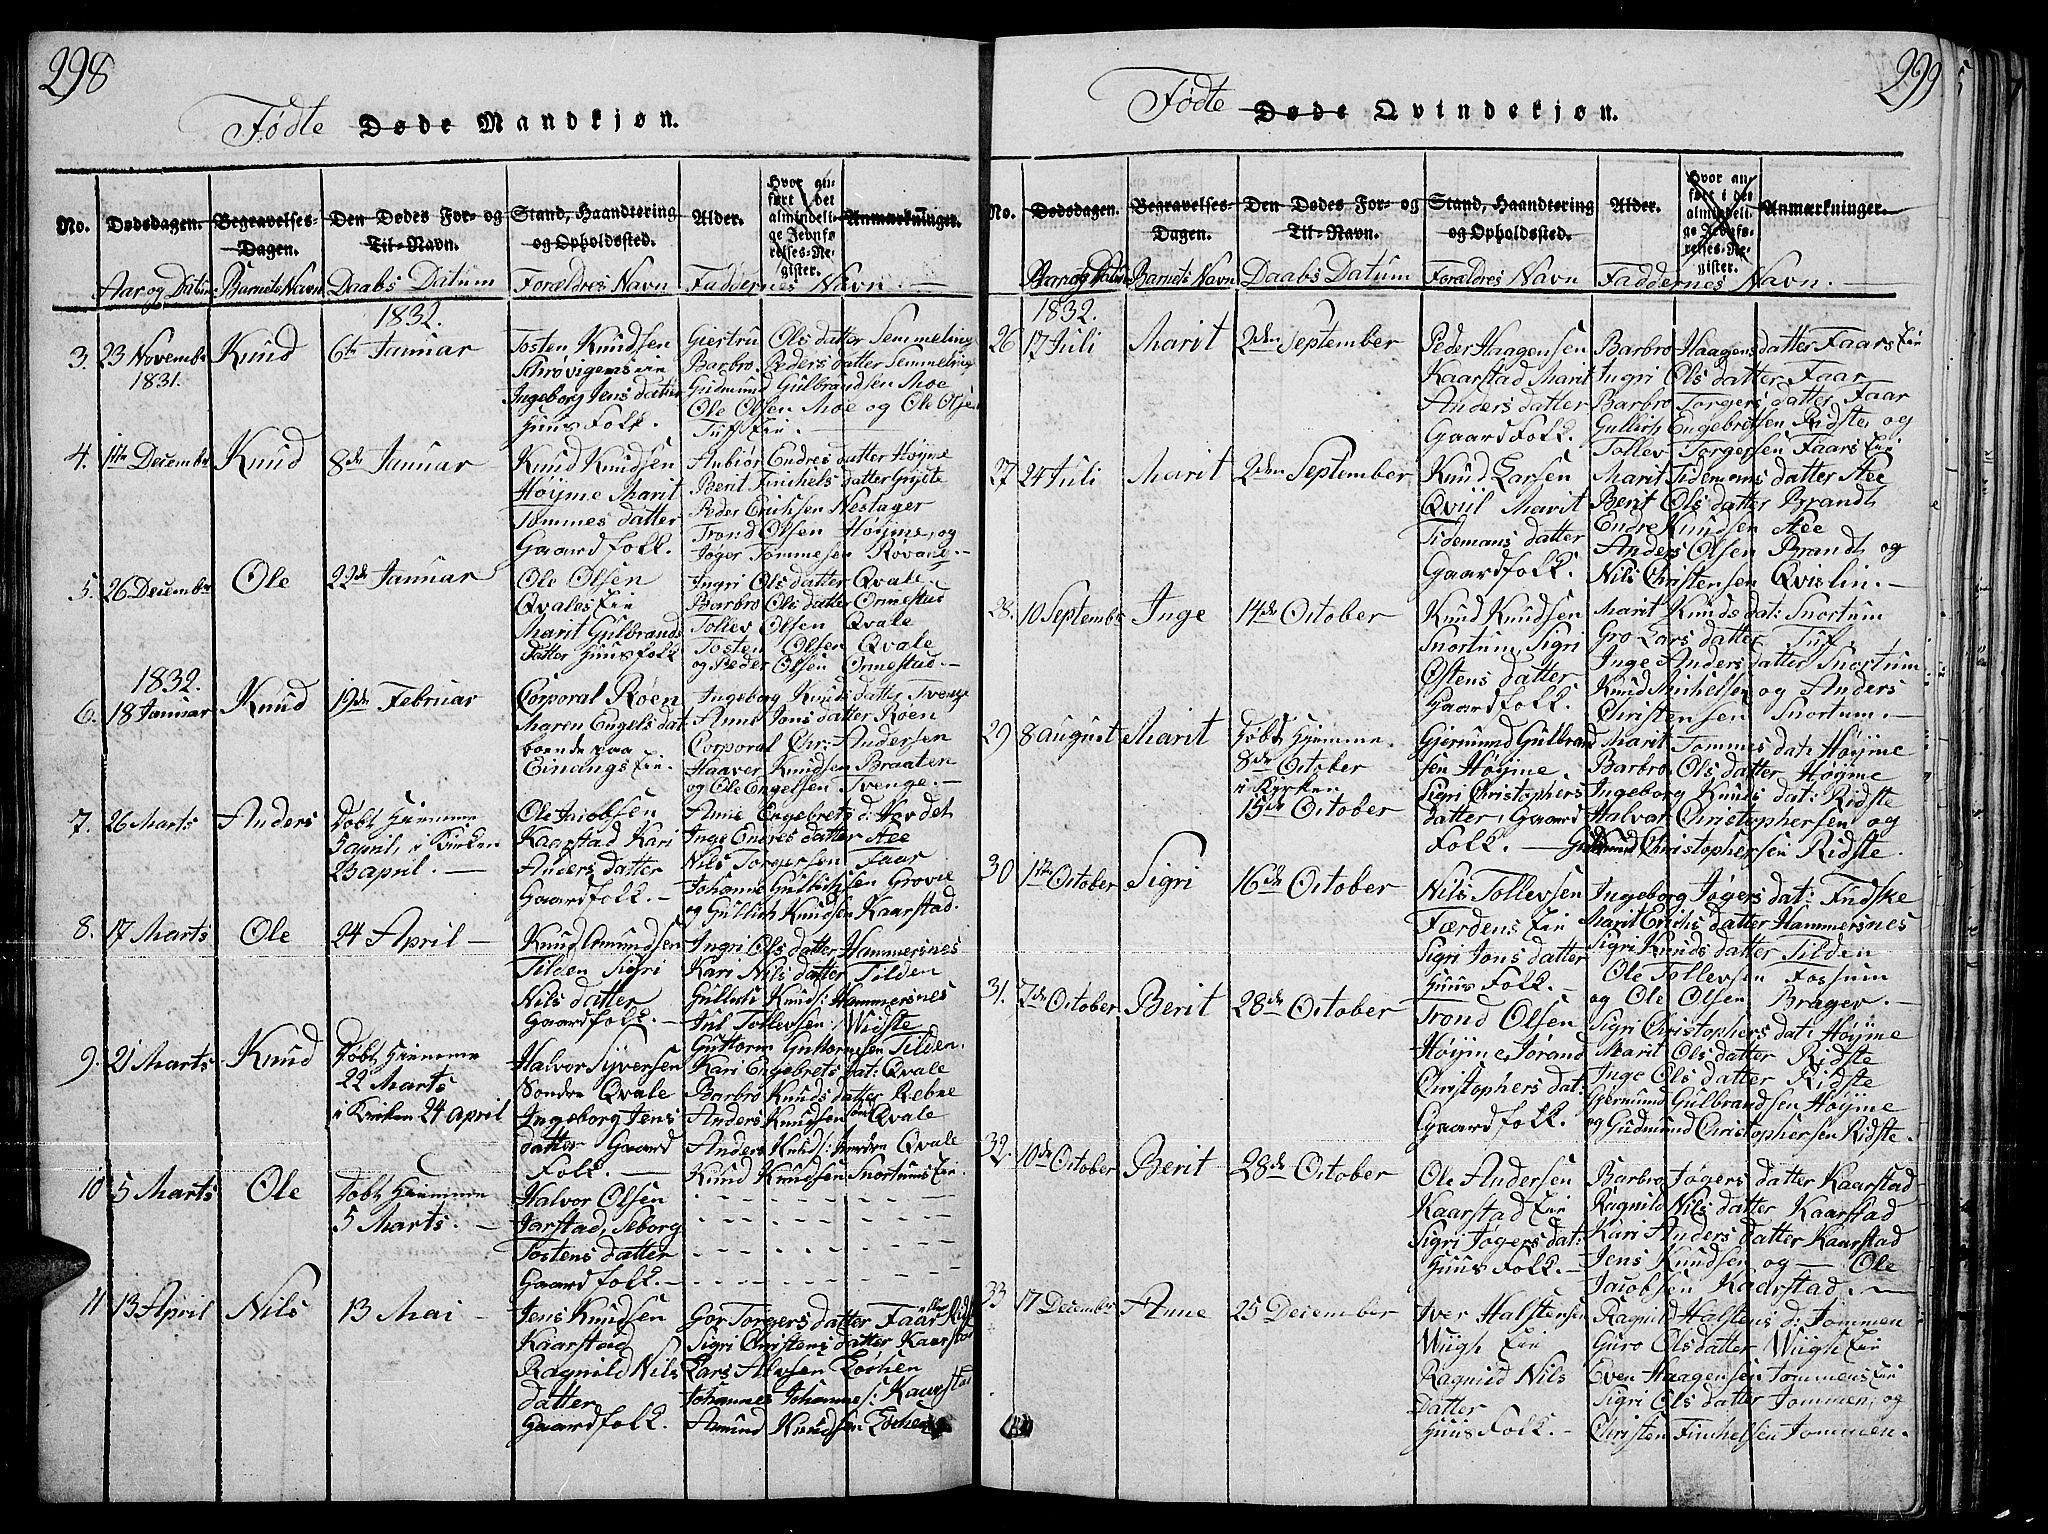 298
Fødte Døde Mandkjøn.
No.
Dødsdagen.
Begravelses-Dagen.
Den Dødes For- og Til-Navn.
Stand, Haandtering og Opholdssted.
Alder.
Hvor anført i det almindelige Jevnførelses-Register.
Anmærkninger.
Aar og Datum
Barnets Navn
Daabs Datum
Forældres Navn
Faddernes Navn.
1832.
3. 23 Novembr 1831.
Knud
6te Januar
Tosten Knudsen
Ingeborg Jens datter
Huus Folk.
Giertru Ols datter Semmeling
Barbro Peders datter Semmeling
Gudmund Gulbrandsen Moe
Ole Olsen Moe og Ole Olsen
Tuff Eie.
4. 1ste December
Knud
8de Januar
Knud Knudsen
Høyme Marit
Tommes datter
Gaardfolk.
Anbiør Endres datter Høyme
Berit
Peder Erichsen Nestager
Trond Olsen Høyme, og
Joger Tommesen Røvale.
5. 26 December
Ole
22de Januar
Ole Olsen
Qvales Eie
Marit Gulbrands
datter Huusfolk
Ingri Ols datter Qvale
Barbro Ols datter Ormestad
Tollev Olsen Qvale
Tosten Olsen Qvale
og Peder Olsen Ormestad.
1832.
6. 18 Januar
Knud
19de Februar
Corporal Røen
Maren Engels dat
boende paa
Eie.
Ingeborg Knuds datter Tvenge
Anne Jons datter Røen
Corporal Chr: Andersen
Haaver Knudsen Braaten
og Ole Engelsen Tvenge.
7. 26 Marts
Anders
Døbt Hiemme
3 april, i Kirken
23 april.
Ole Jacobsen
Kaarstad Kari
Anders datter
Gaardfolk.
Anne Engebrets d: Hovdet
Inge Endres datter Aee
Nils Torgersen Faar
Johanne Gullichsen Grovie
og Gullich Knudsen Kaarstad.
8. 17 Marts
Ole
24 April
Knud Amundsen
Tilden Sigri
Nils datter
Gaardfolk.
Ingri Ols datter Hammersnes
Kari Nils datter Tilden
Gullich Knuds: Hammersnes
Jul Tollevsen Widste
Guttorm Guttormsen Tilden.
9. 21 Marts
Knud
Døbt Hiemme
22 Marts
i Kirken 24 april
Halvor Syversen
Søndre Qvale
Ingeborg Jens
datter Gaard
Folk.
Kari Engebrets dat: Qvale
Barbro Knuds datter Rebne
Anders Knudsen Qvale
Anders Knuds: Søndre Qvale
Knud Knudsen Snortums Eie.
10 5 Marts
Ole
Døbt Hiemme
5 Marts.
Halvor Olsen
Jarstad, Seborg
Tostens datter
Gaardfolk.
11 13 April
Nils
13 Mai
Jens Knudsen
Kaarstad
Ragnild Nils
datter
Gaardfolk.
Gor Torgers datter Faar
Sigri Christens datter Kaarstad
Lars Lochen
Johannes Johannes: Kaarstad
Amund Knudsen Lochen
299
Fødte Døde Qvindekjøn.
No.
Dødsdagen.
Begravelses-Dagen.
Den Dødes For- og Til-Navn.
Stand, Haandtering og Opholdssted.
Alder.
Hvor anført i det almindelige Jevnførelses-Register.
Anmærkninger.
Aar og Datum
Barnets Navn
Daabs Datum
Forældres Navn
Faddernes Navn.
1832.
26 17 Juli
Marit
2den September
Peder Haagensen
Kaarstad Marit
Anders datter
Gaardfolk.
Barbro Haagens datter Faars Eie
Ingri Ols datter Faar
Barbro Torgers datter Faar
Gullich Engebretsen Ridste, og
Tollev Torgersen Faars Eie
27 24 Juli
Marit
2den September
Knud Larsen
Qviil Marit
Tidemans datter
Gaardfolk.
Marit Tidemans datter Aee
Berit Ols datter Brandt
Endre Knudsen Aee
Anders Olsen Brandt og
Nils Christensen Qvislin.
28. 10 September
Inge
14de October
Knud Knudsen
Snortum, Sigri
Ostens datter
Gaardfolk.
Marit Knuds dat: Snortum
Gro Lars datter Tuf
Inge Anders datter Snortum
Knud Michelsen og Anders
Christensen Snortum.
29 8 august
Marit
Døbt Hiemme
8de October
i Kirken
15de October
Gjermund Gulbrand
sen Høyme.
Sigri Christophers
datter, Gaard
Folk.
Marit Tommes dat: Høyme
Barbro Ols datter Høyme
Ingeborg Knuds dat: Ridste
Halvor Christophersen og
Gudmund Christophersen Ridste.
30 1ste October
Sigri
16de October
Nils Tollevsen
Færdens Eie
Sigri Jons datter
Huus Folk.
Ingeborg Jøgers dat: Fudske
Marit Erichs datter Hammersnes
Sigri Knuds datter Tilden
Ole Tollevsen Fossum
og Ole Olsen Brager.
31. 7de October
Berit
28de October
Trond Olsen
Høyme, Jorand
Christophers dat:
Gaardfolk.
Sigri Christophers dat: Høyme
Marit Ols datter Ridste
Inge Ols datter Ridste
Gjermund Gulbrandsen Høyme
og Gudmund Christophersen Ridste.
32. 10de October
Berit
28de October
Ole Andersen
Kaarstad Eie
Sigri Jogers dat:
Huus Folk.
Barbro Jøgers datter Kaarstad
Ragnild Nils datter Kaarstad
Kari Anders datter Kaarstad
Jens Knudsen og Ole
Jacobsen Kaarstad.
33 17 December
Anne
25 December
Iver Halstensen
Wiigs Eie
Ragnild Nils
Datter
Huus Folk.
Ragnild Halstens d: Tommen
Guro Ols datter Wiigs Eie
Even Haagensen Tommens Eie
Sigri Ols datter Tommen, og
Christen Finchelsen Tommen.